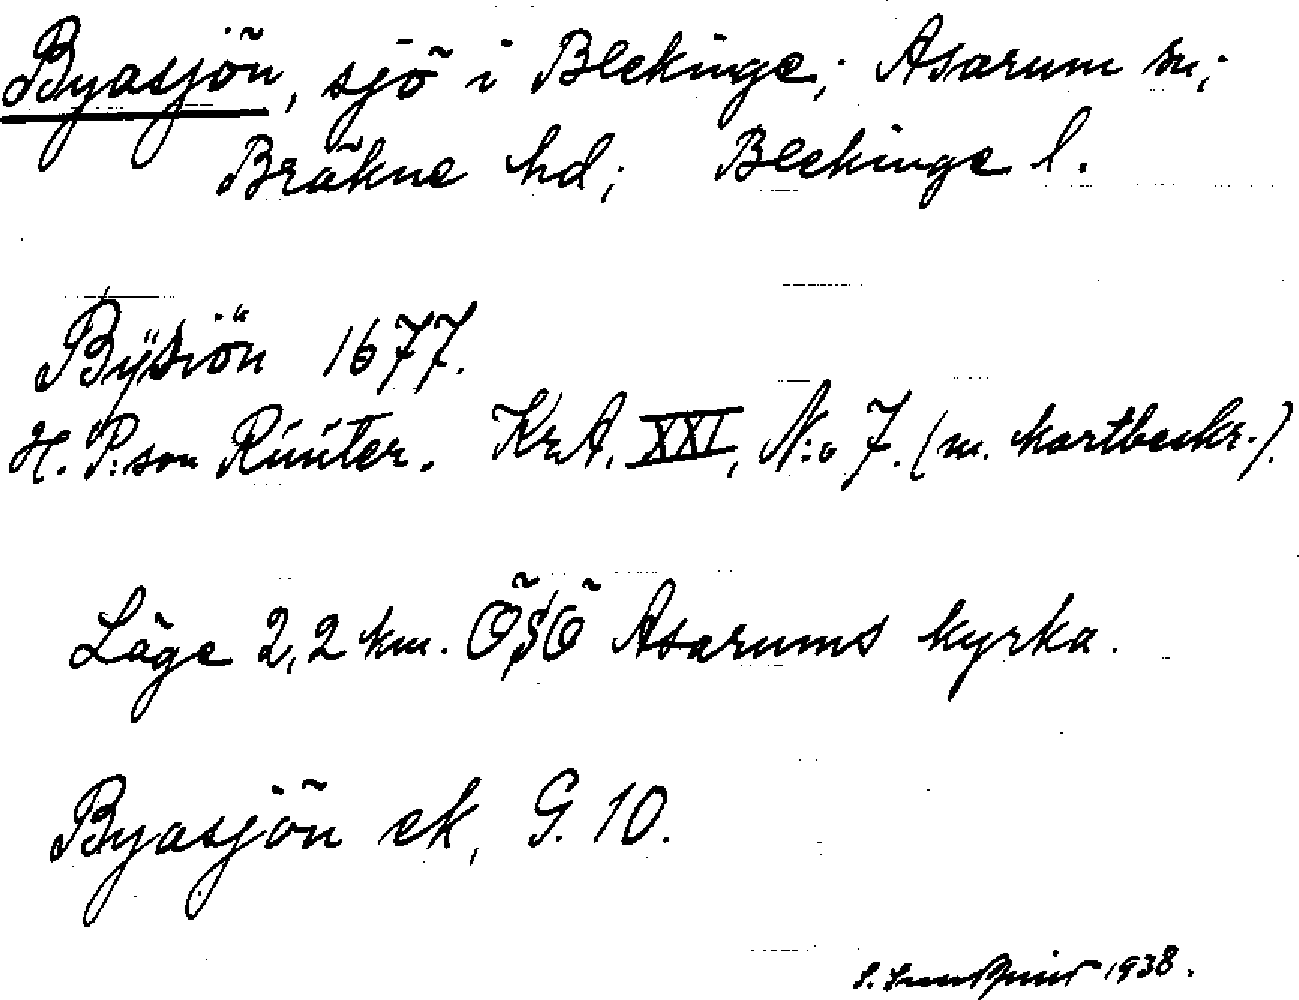 Byasjön, sjö i Blekinge; Asarum sn;
Bräkne hd; Blekinge l.
Bÿsiön 1677.
H. P:son Rüüter. KrA. XXI, N:o 7. (m. kartbeskr.).
Läge 2,2 km. ÖSÖ Asarums kyrka.
Byasjön ek, G. 10.
1938.